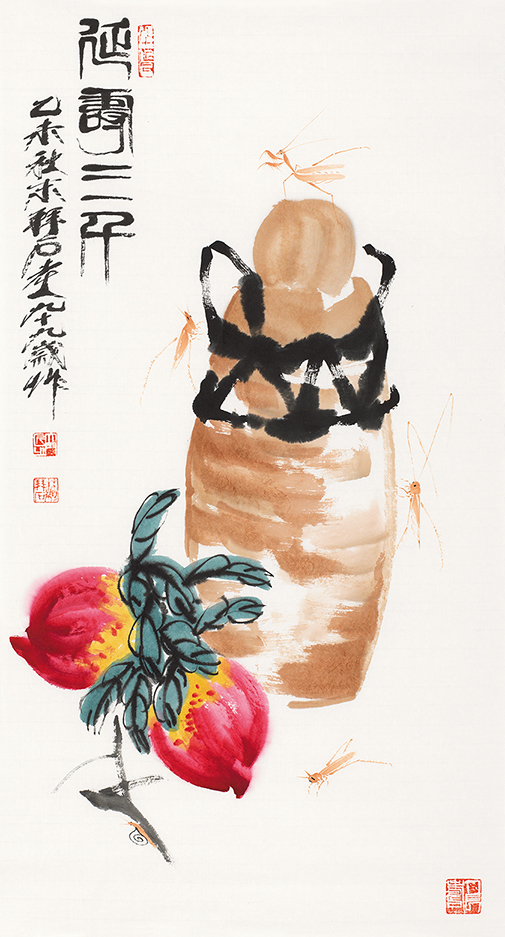 延壽三千
乙未秋末拜石老人九十九歲作